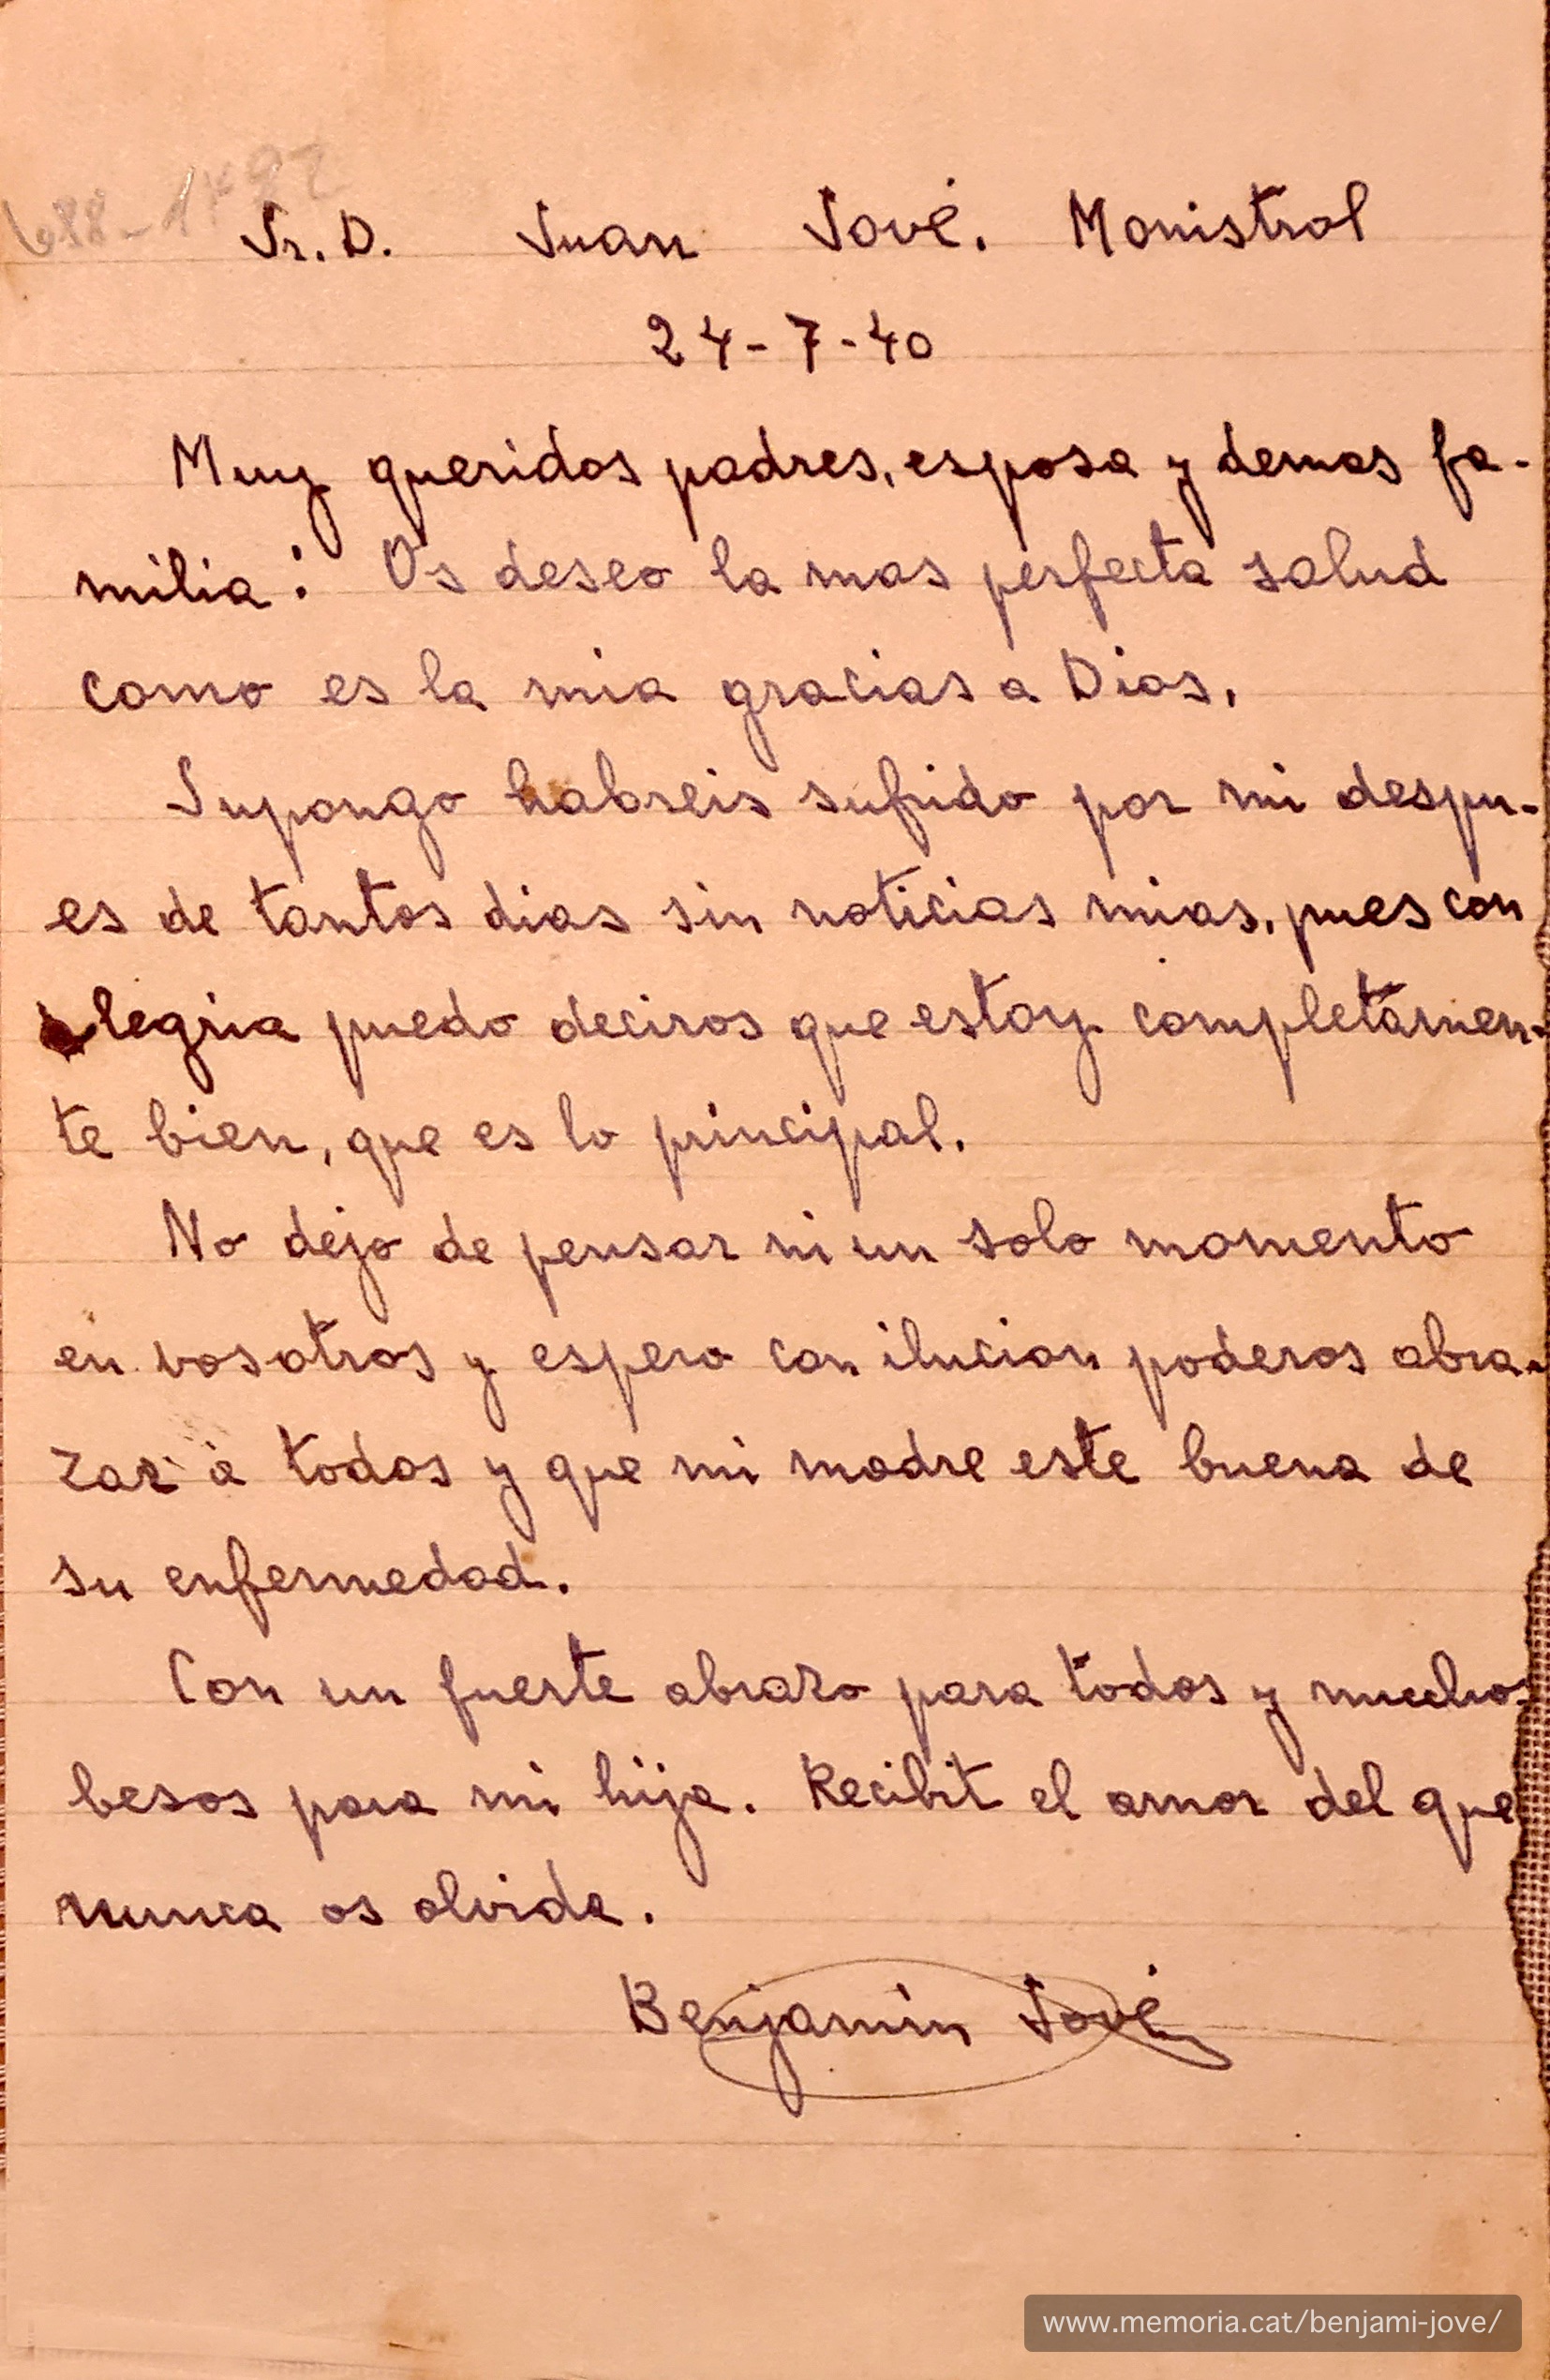 Sr. D. Juan Jové. Monistrol
24-7-40
Muy queridos padres, esposa y demas fa-
milia: Os deseo la mas perfecta salud
como es la mia gracias a Dios.
Supongo habreis sufrido por mi despu-
es de tantos dias sin noticias mias, pues con
alegria puedo deciros que estoy completamen-
te bien, que es lo principal.
No dejo de pensar ni un solo momento
en vosotros y espero con ilucion poderos abra-
zar a todos y que mi madre este buena de
su enfermedad.
Con un fuerte abrazo para todos y muchos
besos para mi hija. Recibit el amor del que
nunca os olvida.
Benjamín Jové
www.memoria.cat/benjami-jove/